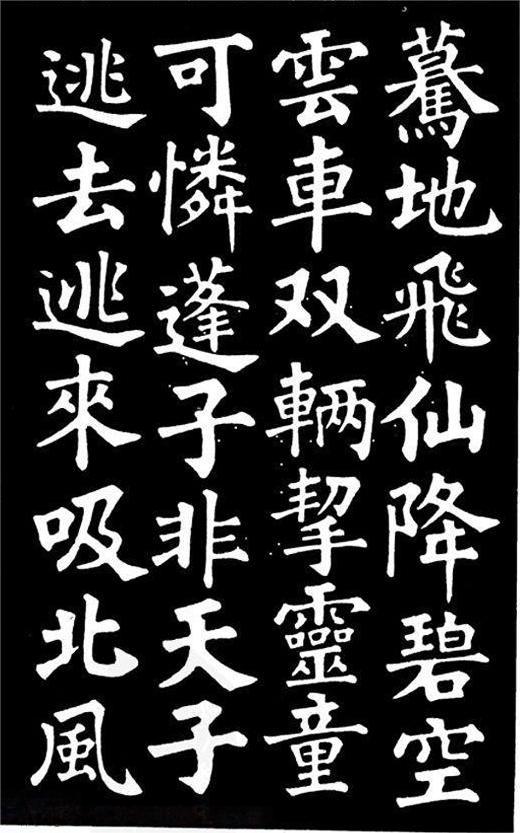 驀地飛仙降碧空
雲車双輛挈靈童
可憐蓬子非天子
逃去逃來吸北風